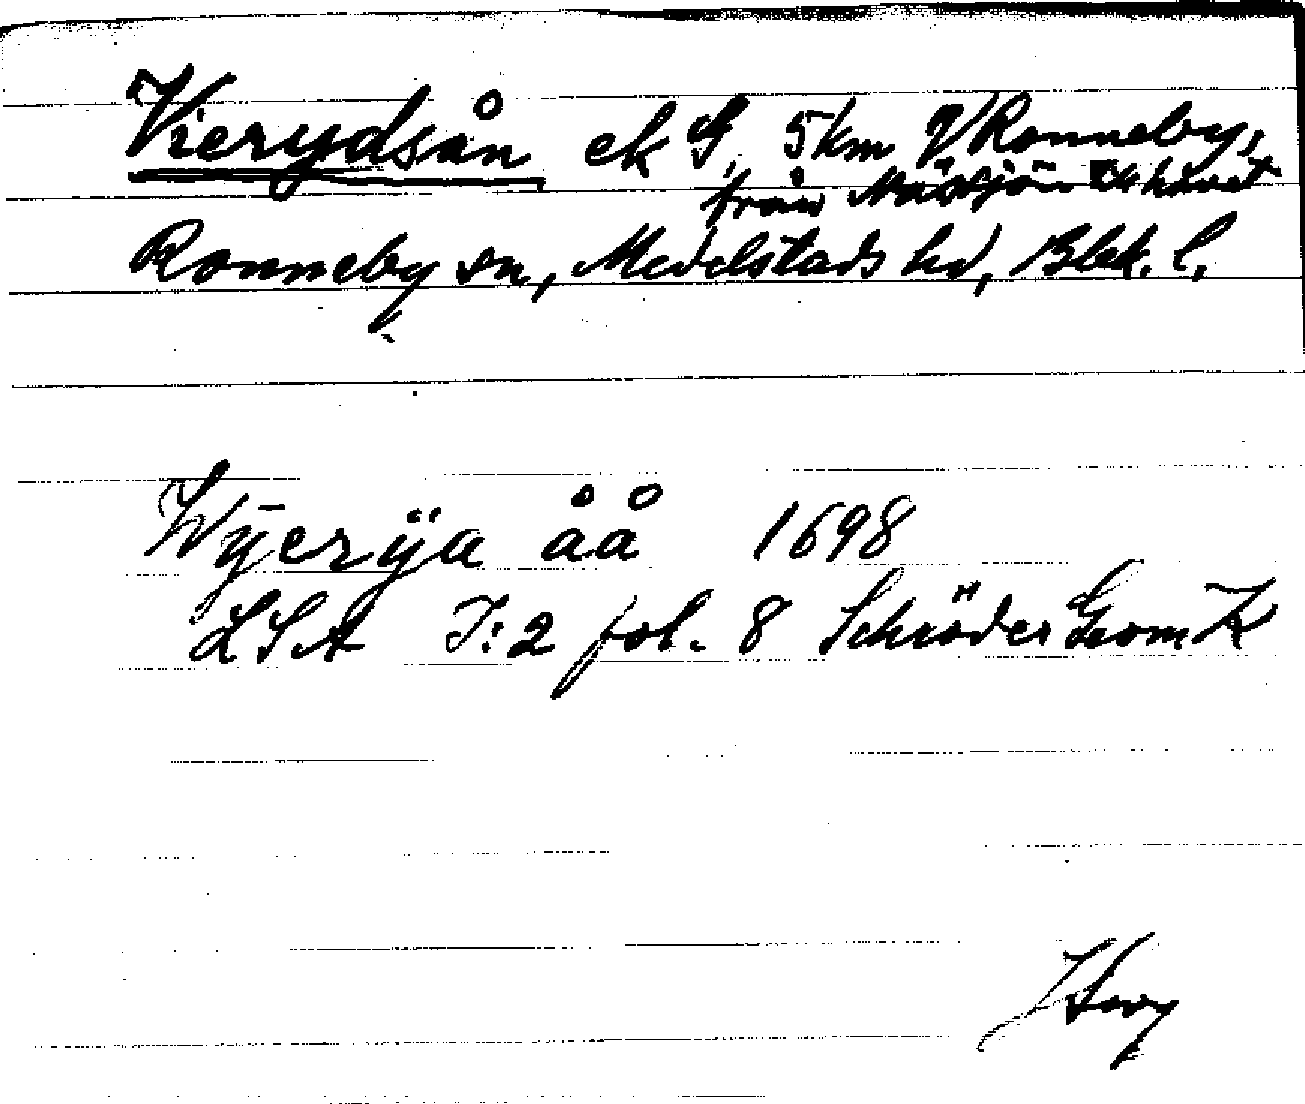 Vierydsån ek G, 5 km V Ronneby,
från Nässjön till havet
Ronneby sn, Medelstads hd, Blek. l.
Wÿerÿa åå 1698
LSA I:2 fol. 8 Schröder Geom K